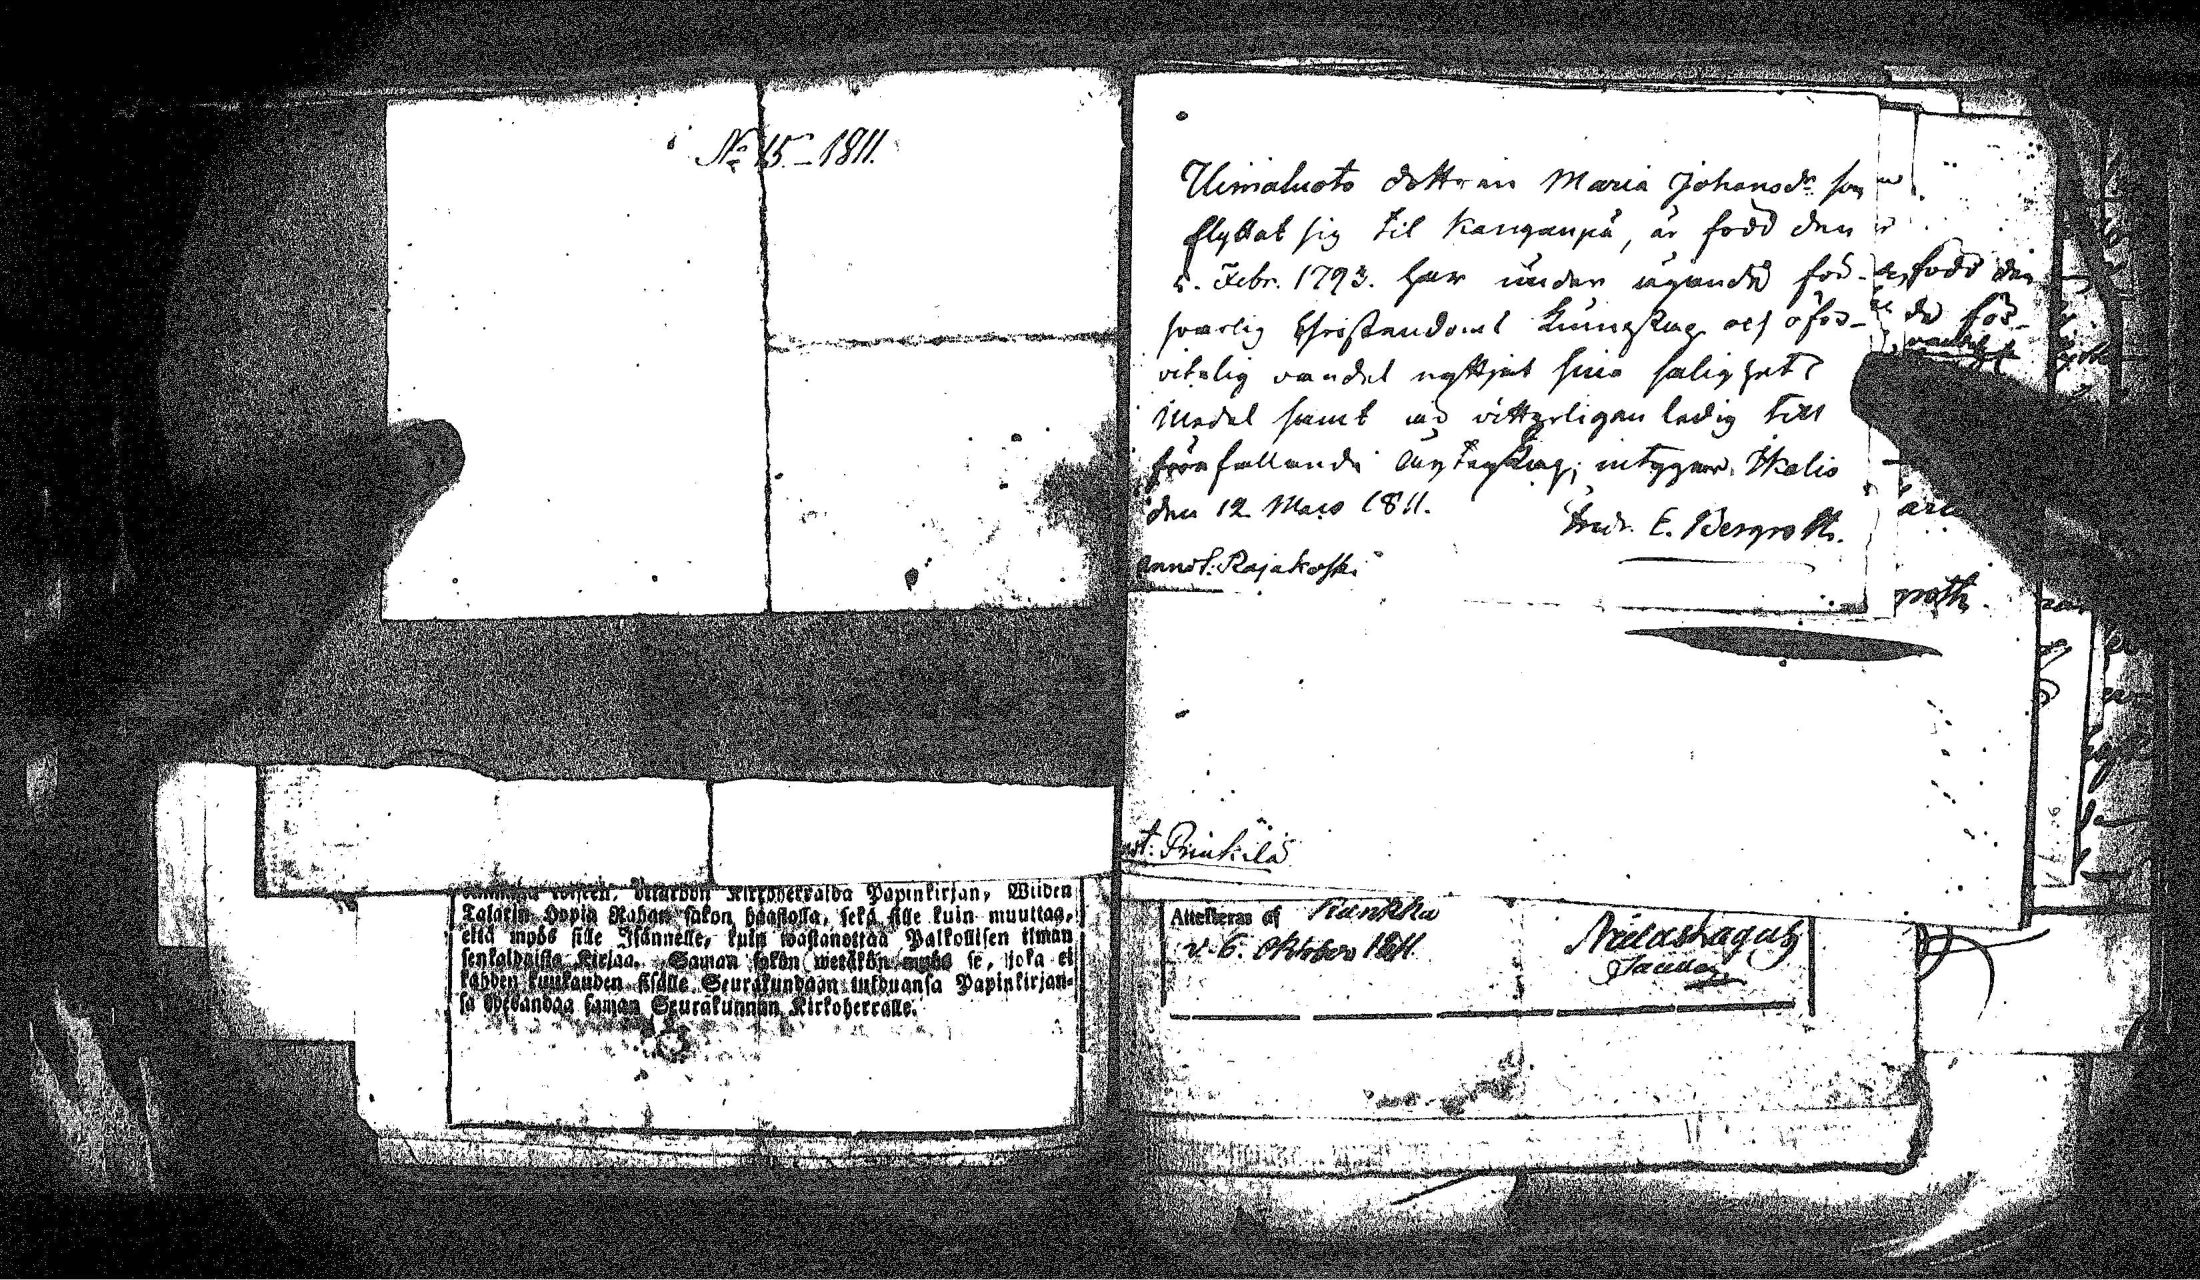 No 15.–1811.
Uimaluoto dottren Maria Johansdr. som
flyttat sig til Kanganpä, är född den
5. Febr. 1793. har under ägande för-
svarlig Christendoms Kunskap och oför-
vitelig vandel nyttjat sina salighets
Medel samt är vitterligen ledig till
förefallande äytenskap; intygar. Ikalis
den 12 Mars 1811.
Andr. E. Bergroth.
annot: Rajakoski
född den
de för-
roth.
Prinkilä
Kirkoherralda Papinkirjan, Wiiden
Talarin Hopia Rahan sakon haastolla, sekä sille kuin muuttaa,
että myös sille Isännelle, kuin wastanottaa Palkollisen ilman
senkaldaista Kirjaa. Saman sakon wetäkön myös se, joka ei
kahden kuukauden sisälle Seurakundaan tulduansa Papinkirjan-
sa edesandaa saman Seurakunnan Kirkoherralle.
Attesteras af Kankka
d. 6. October 1811.